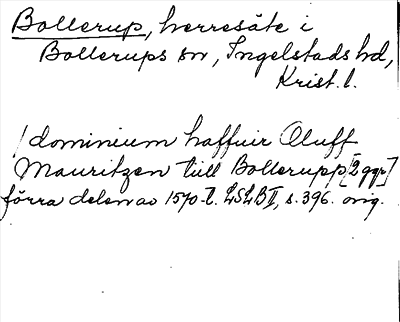 Bollerup, herresäte i
Bollerups sn, Ingelstads hd,
Krist. l.
/dominium haffuir Oluff
Mauritzen till Bollerupp [2 ggr]
förra delen av 1570-t. LSLB II, s. 396. orig.